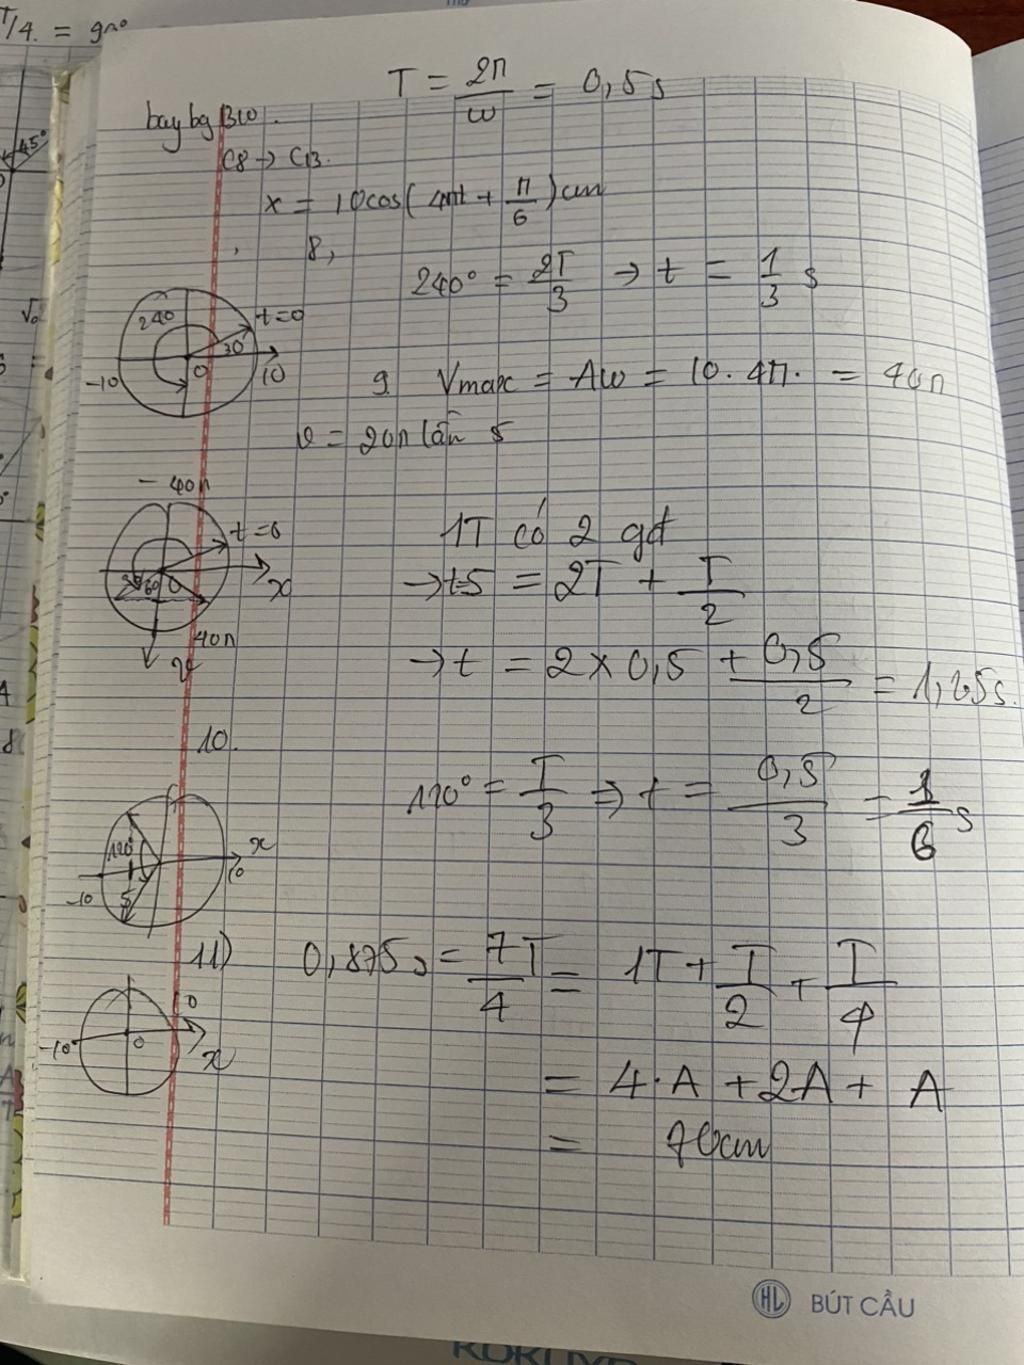 T/4. = 90°
45°
T = 2π/ω = 0,5s
C8 → C13.
x = 10cos(4πt + π/6)cm
8,
240° = 2T/3 → t = 1/3 s
240
t=0
30°
-10
O
10
9. Vmax = Aω = 10.4π. = 40π
v = 20π lần 5
-40π
t=0
60
O
x
40π
v
1T có 2 gđ
→ t5 = 2T + T/2
→ t = 2 × 0,5 + 0,5/2 = 1,25s.
10.
120° = T/3 ⇒ t = 0,5/3 = 1/6 s
120°
x
-10
10
-5
11) 0,875s = 7T/4 = 1T + T/2 + T/4
-10
O
10
x
= 4.A + 2A + A
= 70cm
HL BÚT CẦU
KOKUYO